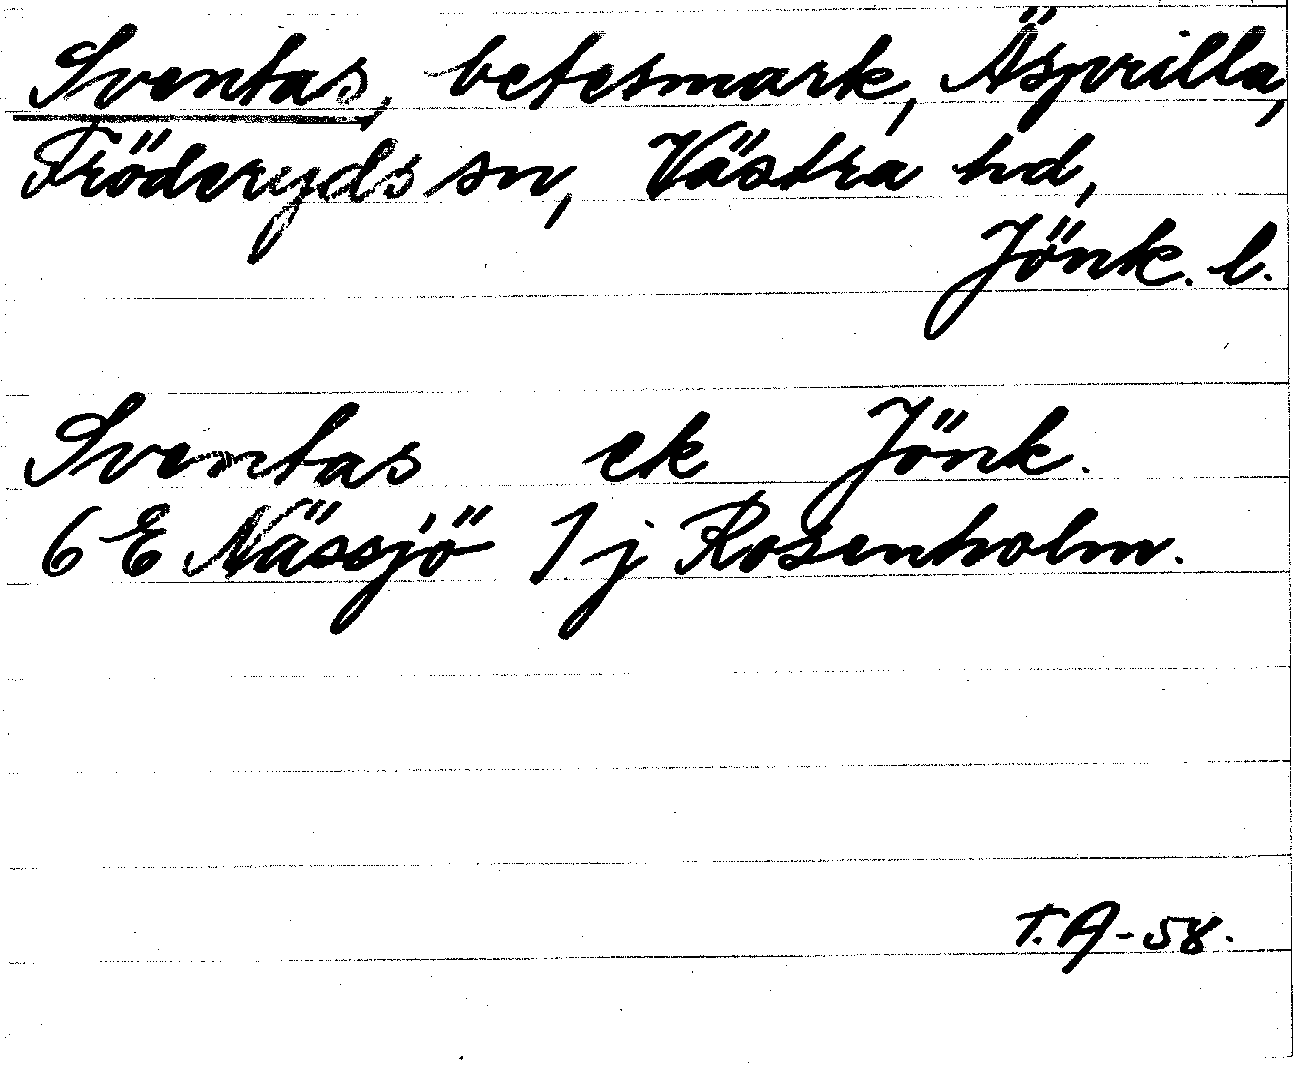 Sventas, betesmark, Äsprilla,
Fröderyds sn, Västra hd,
Jönk. l.
Sventas ek Jönk.
6 E Nässjö 1 j Rosenholm.
T.A-58.